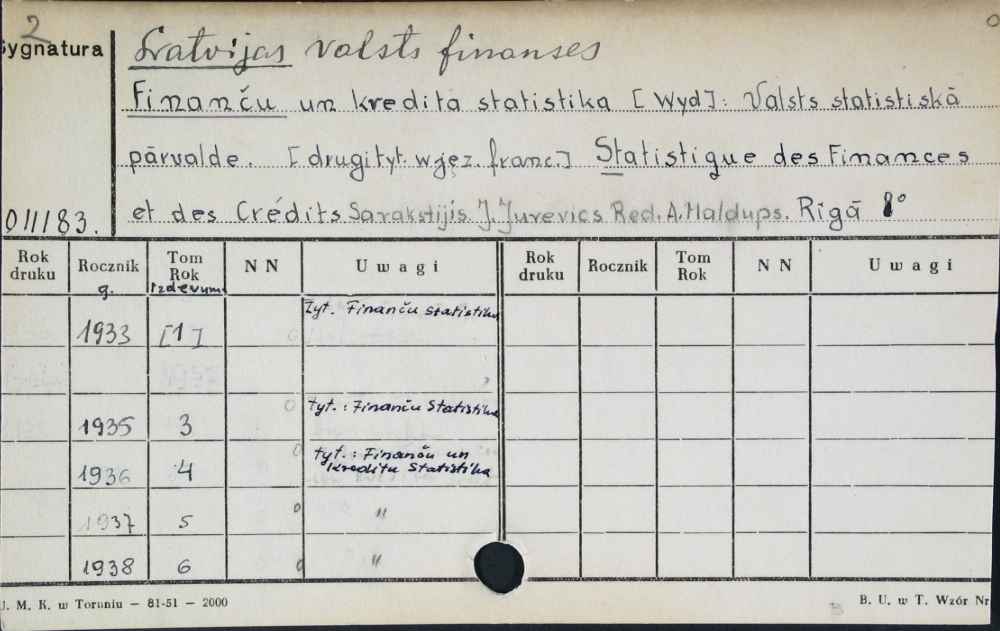 2
Sygnatura
Latvijas valsts finanses
Finanču un kredita statistika [Wyd]: Valsts statistiskā
pārvalde. [drugi tyt. w jęz. franc.] Statistique des Finances
et des Crédits Sarakstijis. J. Jurevics Red. A. Maldups. Rīgā 8°
011183.
Rok druku Rocznik g. Tom Rok Izdevum NN Uwagi Rok druku Rocznik Tom Rok NN Uwagi
1933 [1] Tyt. Finanču statistika
1935 3 0 tyt.: Finanču Statistika
1936 4 0 tyt.: Finanču un
kreditu Statistika
1937 5 0 "
1938 6 0 "
U. M. K. w Toruniu — 81-51 — 2000 B. U. w T. Wzór Nr